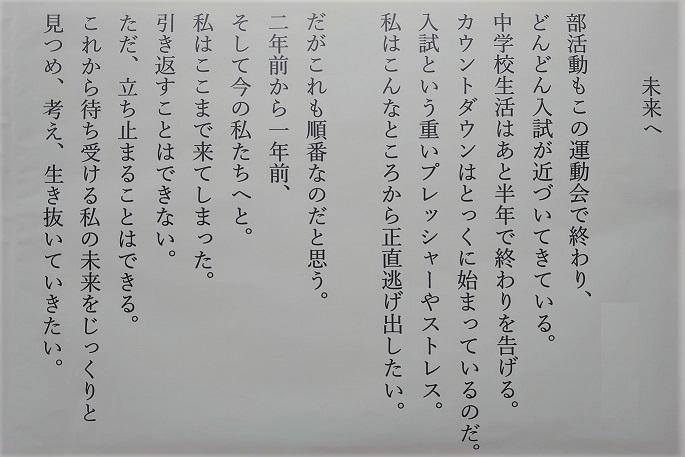 未来へ
部活動もこの運動会で終わり、
どんどん入試が近づいてきている。
中学校生活はあと半年で終わりを告げる。
カウントダウンはとっくに始まっているのだ。
入試という重いプレッシャーやストレス。
私はこんなところから正直逃げ出したい。
だがこれも順番なのだと思う。
二年前から一年前、
そして今の私たちへと。
私はここまで来てしまった。
引き返すことはできない。
ただ、立ち止まることはできる。
これから待ち受ける私の未来をじっくりと
見つめ、考え、生き抜いていきたい。